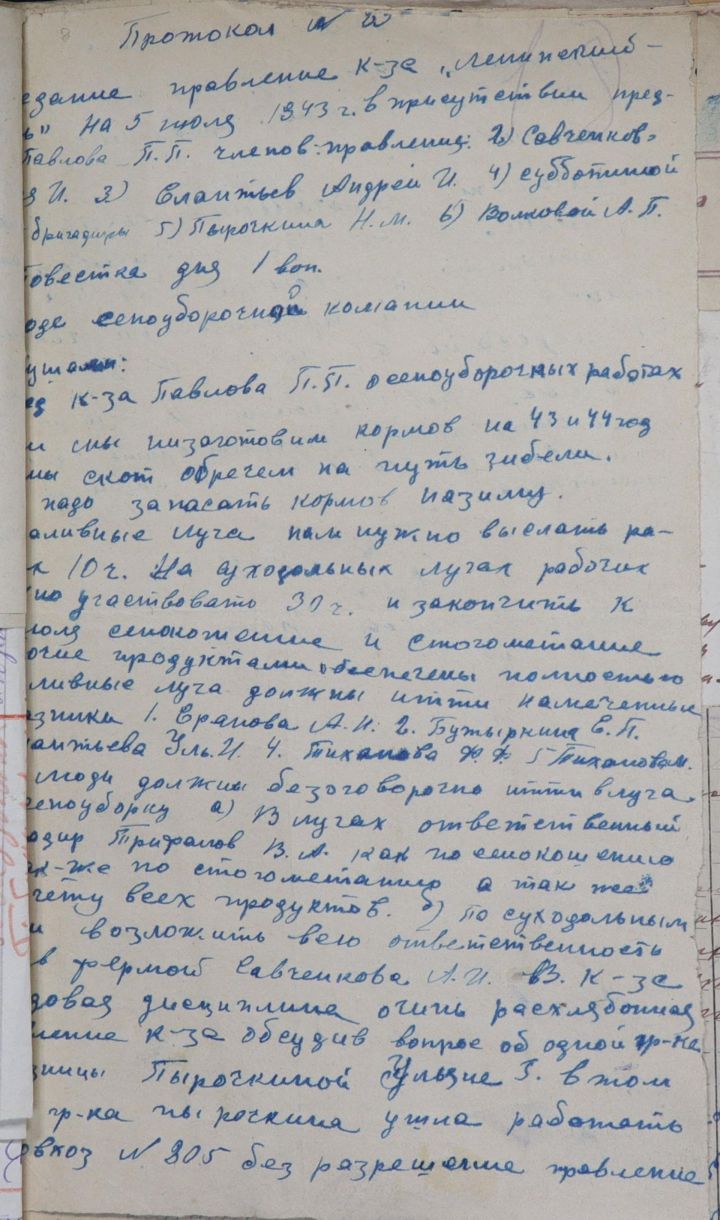 Протокол N
едание правление к-за „Ленинский
ь" на 5 июля 1943 г. в присутствии пред-
Павлова П.П. членов: правления: 2) Савченков
я И. 3) Елантьев Андрей И. 4) субботиной
бригадиры 5) Пырочкина Н.М. 6) Волковой А.П.
Повестка дня 1 воп.
оде сеноуборочной компании
ушали:
ед к-за Павлова П.П. о сеноуборочных работах
и мы низаготовим кормов на 43 и 44 год
мы скот обречем на путь гибели.
надо запасать кормов назиму.
аливные луга нам нужно выслать ра-
х 10 ч. На суходольных лугах рабочих
но участвовать 30 ч. и закончить к
юля сенокошение и стогометание
очие продуктами обеспечены полностью
ливные луга должны итти намеченные
азники 1. Ерапова А.И. 2. Бутыркина Е.П.
лантьева Уль.И. 4. Тиханова Ф.Ф. 5 Тиханова М.
люди должны безоговорочно итти влуга
сеноуборку а) В лугах ответственный
адир Трифалов В.А. как по сенокошению
ак-же по стогометанию а так же
чету всех продуктов. б) по суходольным
и возложить всю ответственность
в фермой Савченкова А.И. в3. К-зе
довая дисциплина очинь расхлябонная
ление к-за обсудив вопрос об одной гр-ке
зницы Пырочкиной Ульяне Г. в том
гр-ка пырочкина ушла работать
овхоз N 805 без разрешение правление